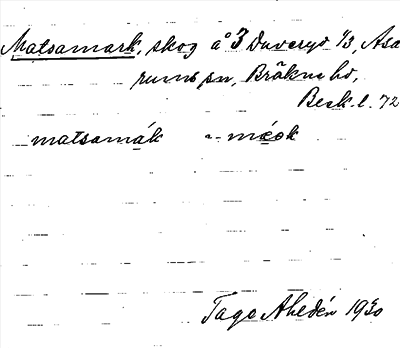 Matsamark, skog å 3 Duveryd 1/3, Asa
rums sn, Bräkne hd,
Beck. l. 72
matsamák
Tage Ahldén 1930